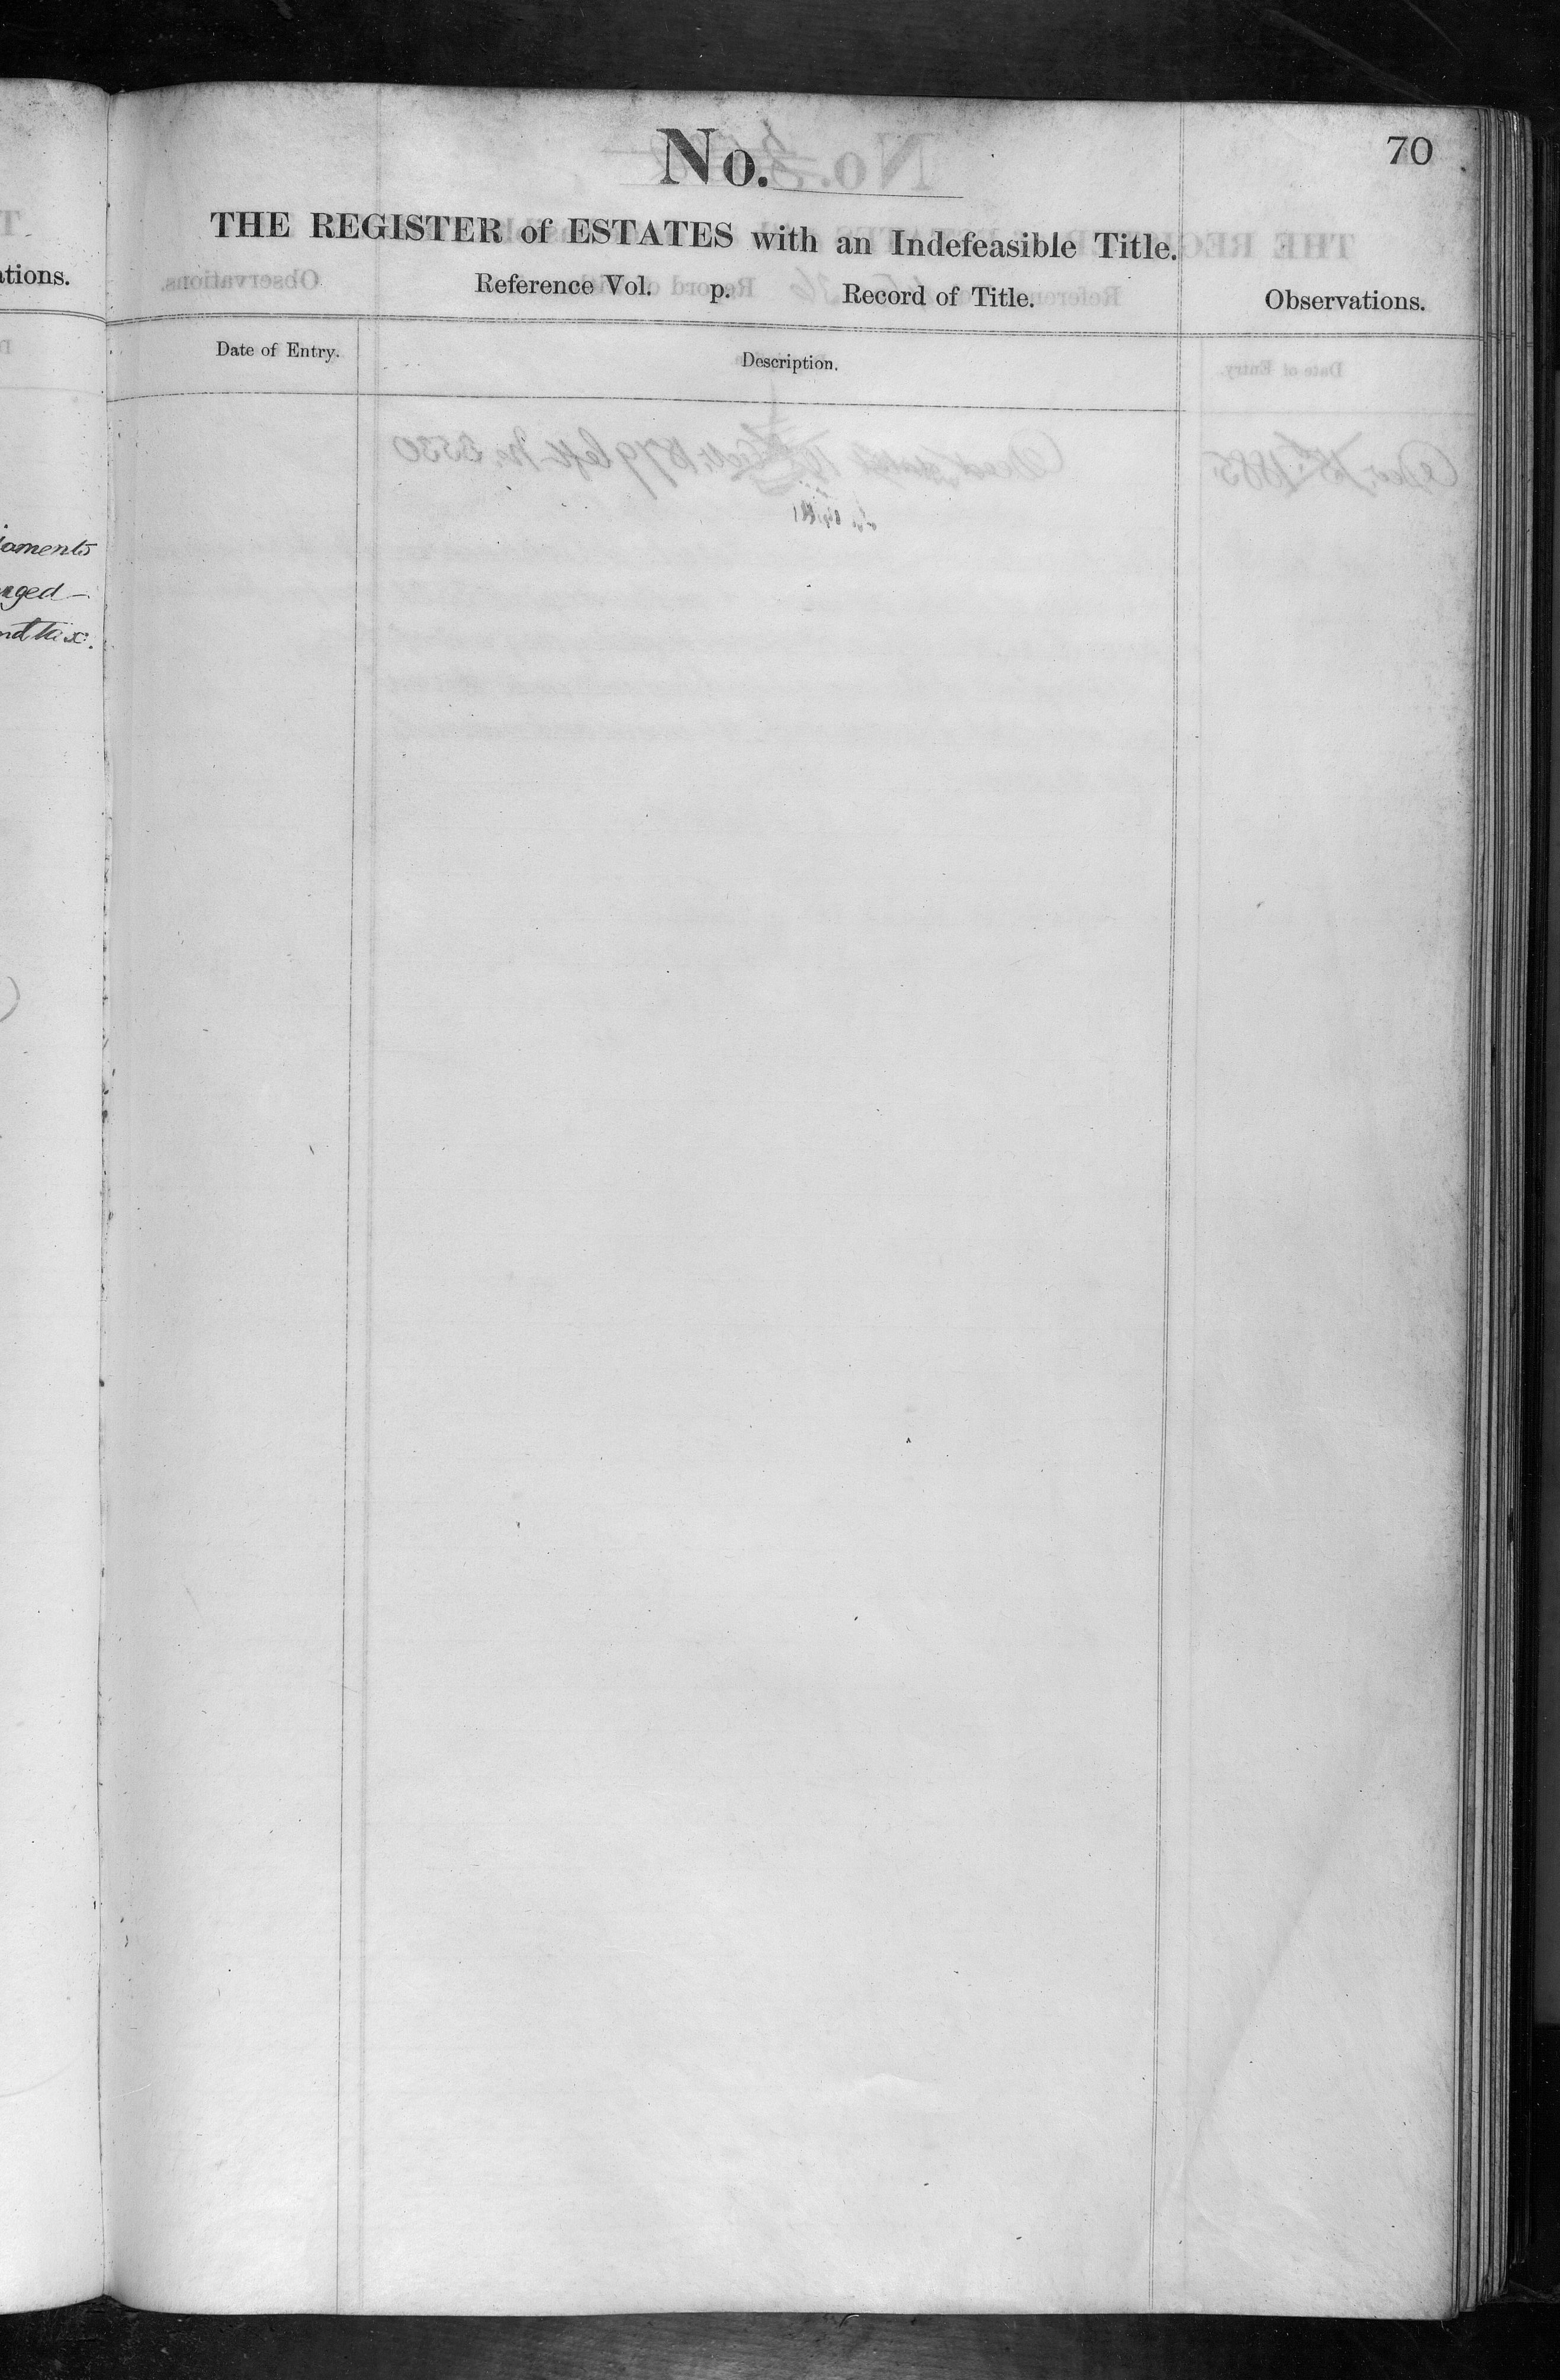 ations.
iaments
nged —
nd tax.
No.
70
THE REGISTER of ESTATES with an Indefeasible Title.
Reference Vol. p. Record of Title.
Observations.
Date of Entry.
Description.